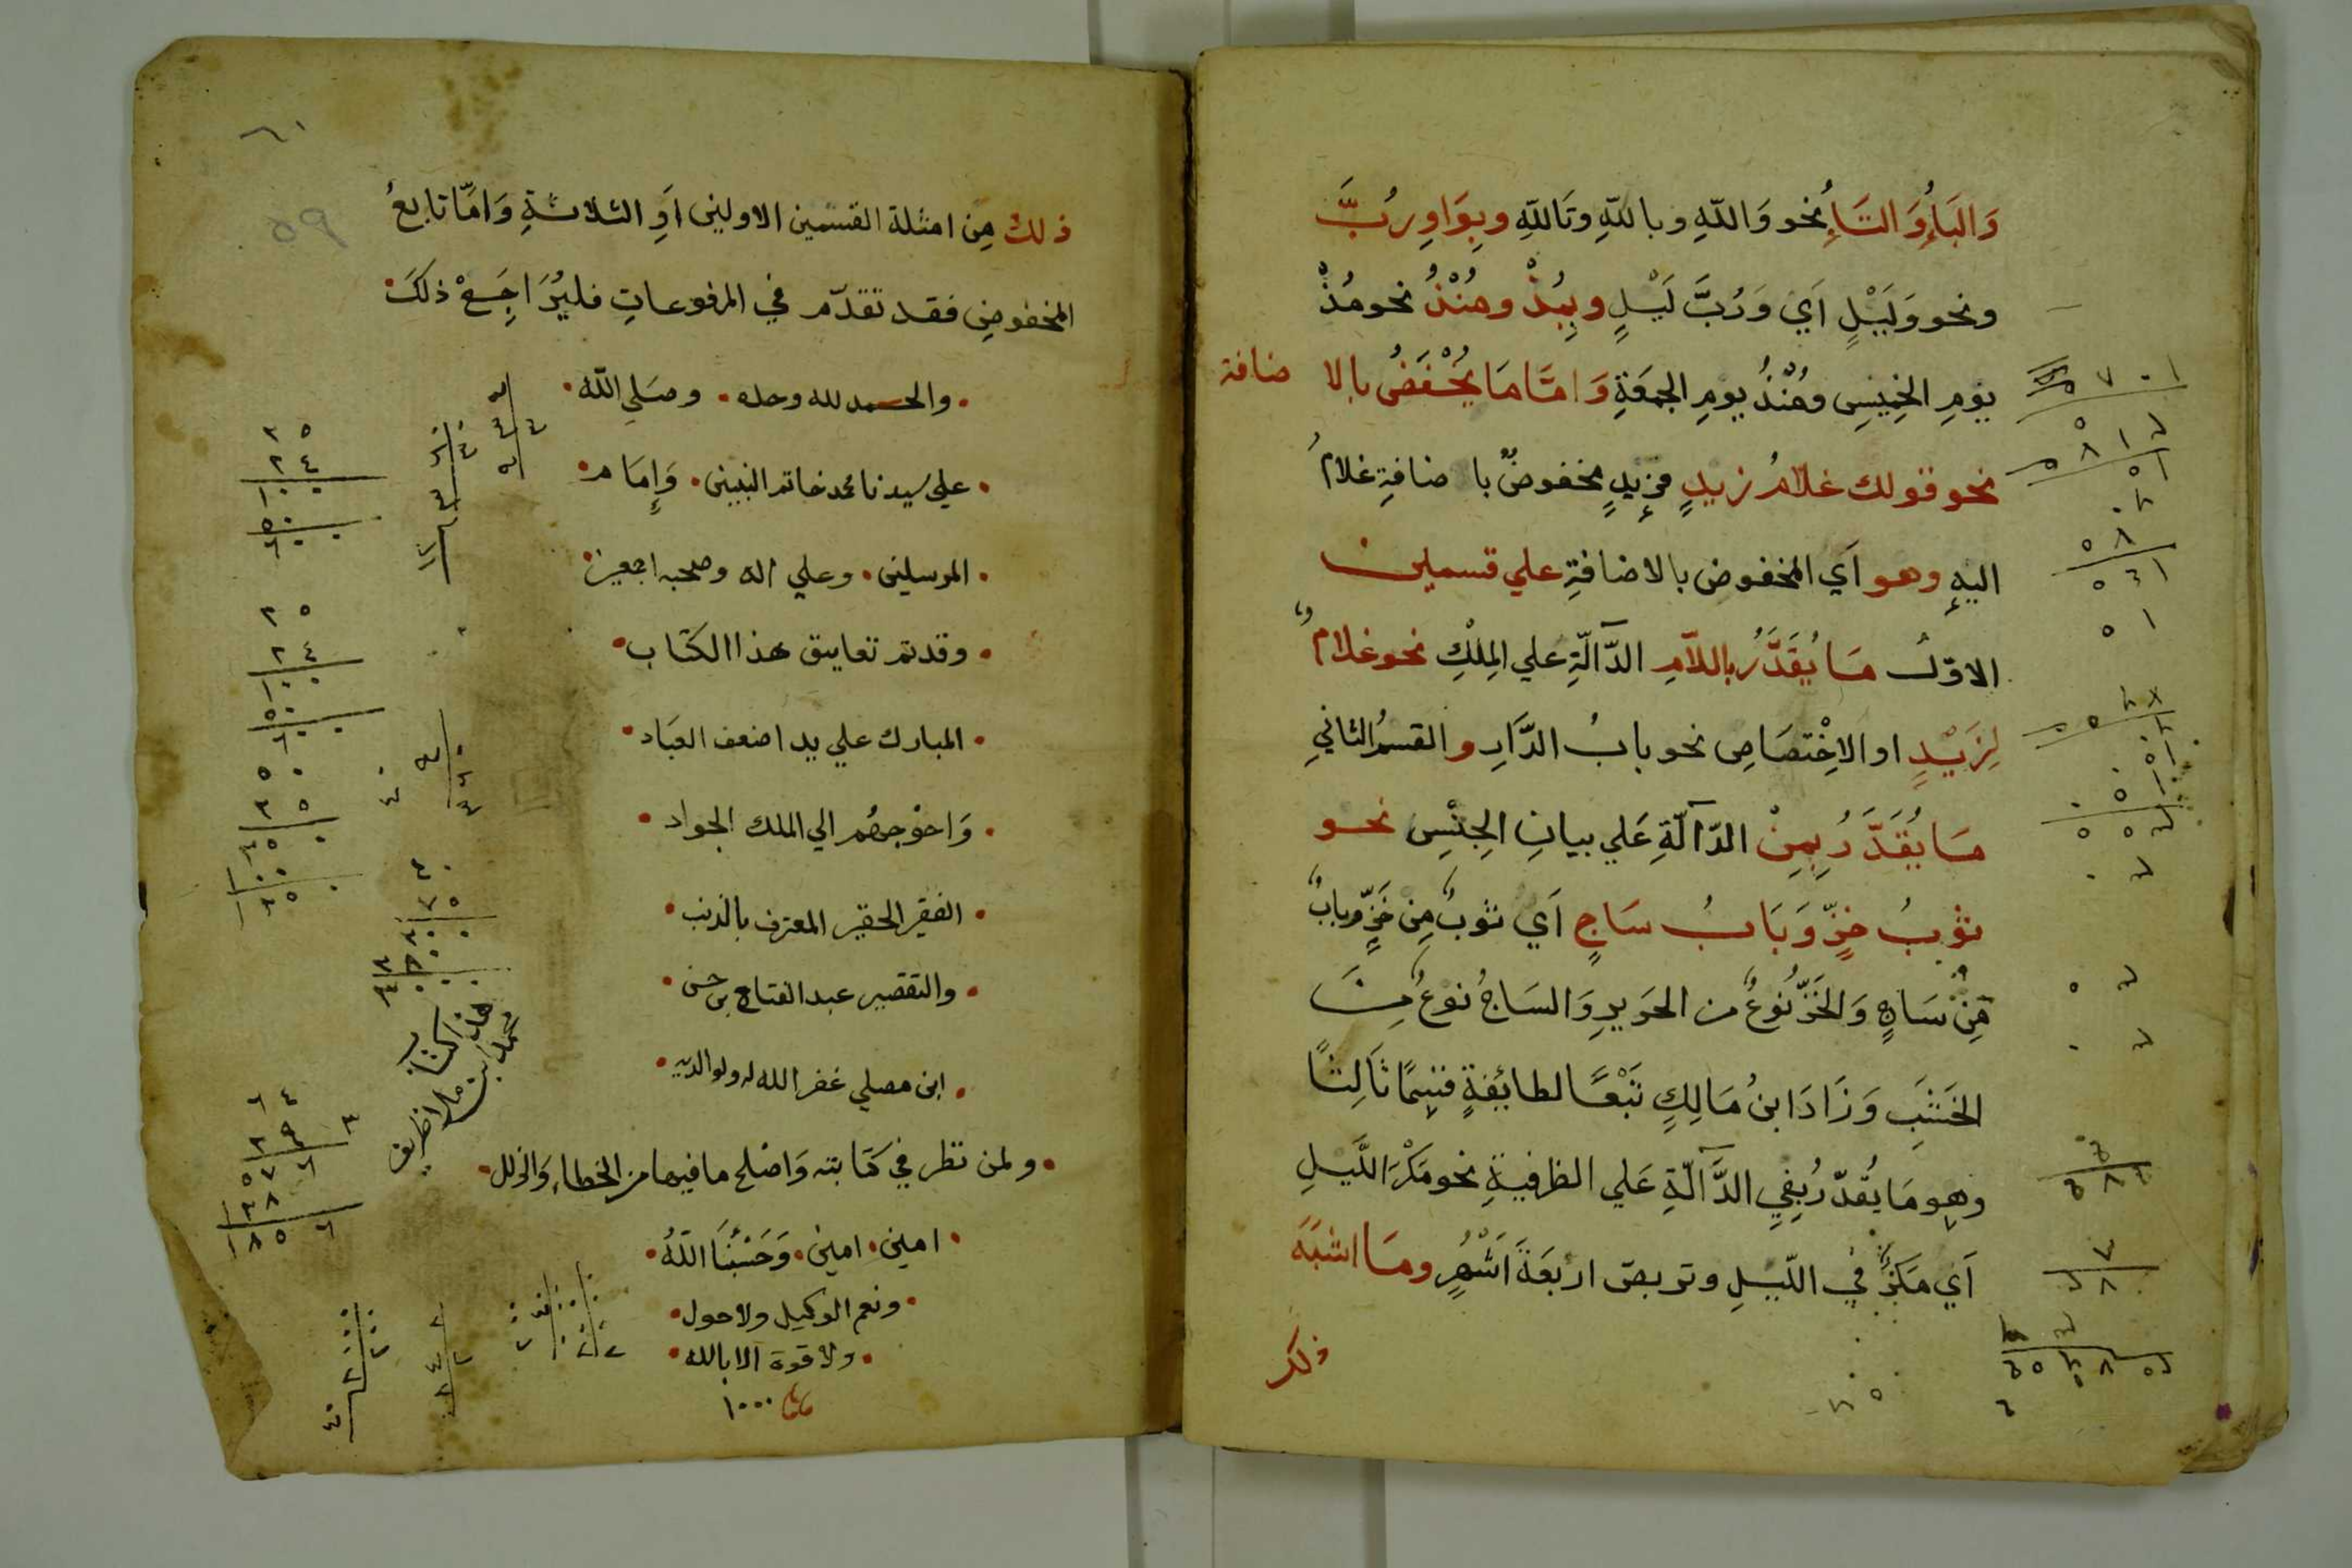 وَالبَأُ وَالتَأُ نحو وَاللّهِ وباللّهِ وتَاللّهِ وبِوَاوِ رُبَّ
ونحو وَلَيْلٍ اَي وَرُبَّ لَيْلٍ وبِمُذْ ومُنْذُ نحو مُذْ
يومِ الخميسِ ومُنْذُ يومِ الجمعَةِ وَامَّا مَا يُخْفَضُ بالا ضافة
نحو قولك غلامُ زيدٍ فزيدٍ مخفوضٌ با ضافةِ غلامُ
اليهِ وهو اَي المخفوض بالاضافةِ علي قسمين
الاوّل مَا يُقَدَّرُ باللاَّمِ الدَّآلّةِ علي المِلْكِ نحو غلامُ
لِزَيْدٍ او الاِخْتصَاصِ نحو بابُ الدَّارِ والقسمُ الثاني
مَا يُقَدَّرُ بِمِنْ الدّآلّةِ عَلي بيانِ الجِنْسِ نحو
ثوبُ خزٍّ وَبَابُ سَاجٍ اَي ثوبٌ مِن خَزٍّ وبابٌ
مِنْ سَاجٍ وَالخَزُّ نُوعٌ من الحَرِيرِ وَالسَاجُ نوعٌ مِنَ
الخَشَبِ وَزَادَ ابنُ مَالِكٍ تَبْعًا لطائِفةٍ قسِمًا ثَالِثًا
وهِو مَا يُقدّرُ بِفِي الدَّآلّةِ عَلي الظرفيةِ نحو مَكْرُ اللَّيلِ
اَي مَكرٌ في اللّيلِ وتربصُ اربَعَةَ اَشْهُرٍ ومَا اشبَهَ
ذلك
ذلك مِن امثلة القسمين الاولين اَوِ الثلاثةِ وَامَّا تابعُ
المخفوضِ فقد تقدّم في المرفوعاتِ فليُرَاجَعْ ذلكَ
والحمد لله وحده وصَلي اللّه
علي سيدنا محمد خاتم النبيين وَاِمَام
المرسلين وعلي اله وصحبه اجمعين
وقد تم تعليق هذا الكتاب
المبارك علي يد اضعف العباد
وَاحوجهم الي الملك الجواد
الفقير الحقير المعترف بالذنب
والتقصير عبد الفتاح بن حسن
ابن مصلي غفر الله له ولوالديه
ولمن نظر في كتابته وَاصلح ما فيها من الخطاءِ وَالزلل
امين امين وَحَسْبُنَا اللّهُ
ونعم الوكيل ولا حول
ولا قوة الا بالله
١٠٠٠
هذا كتاب
٥٩